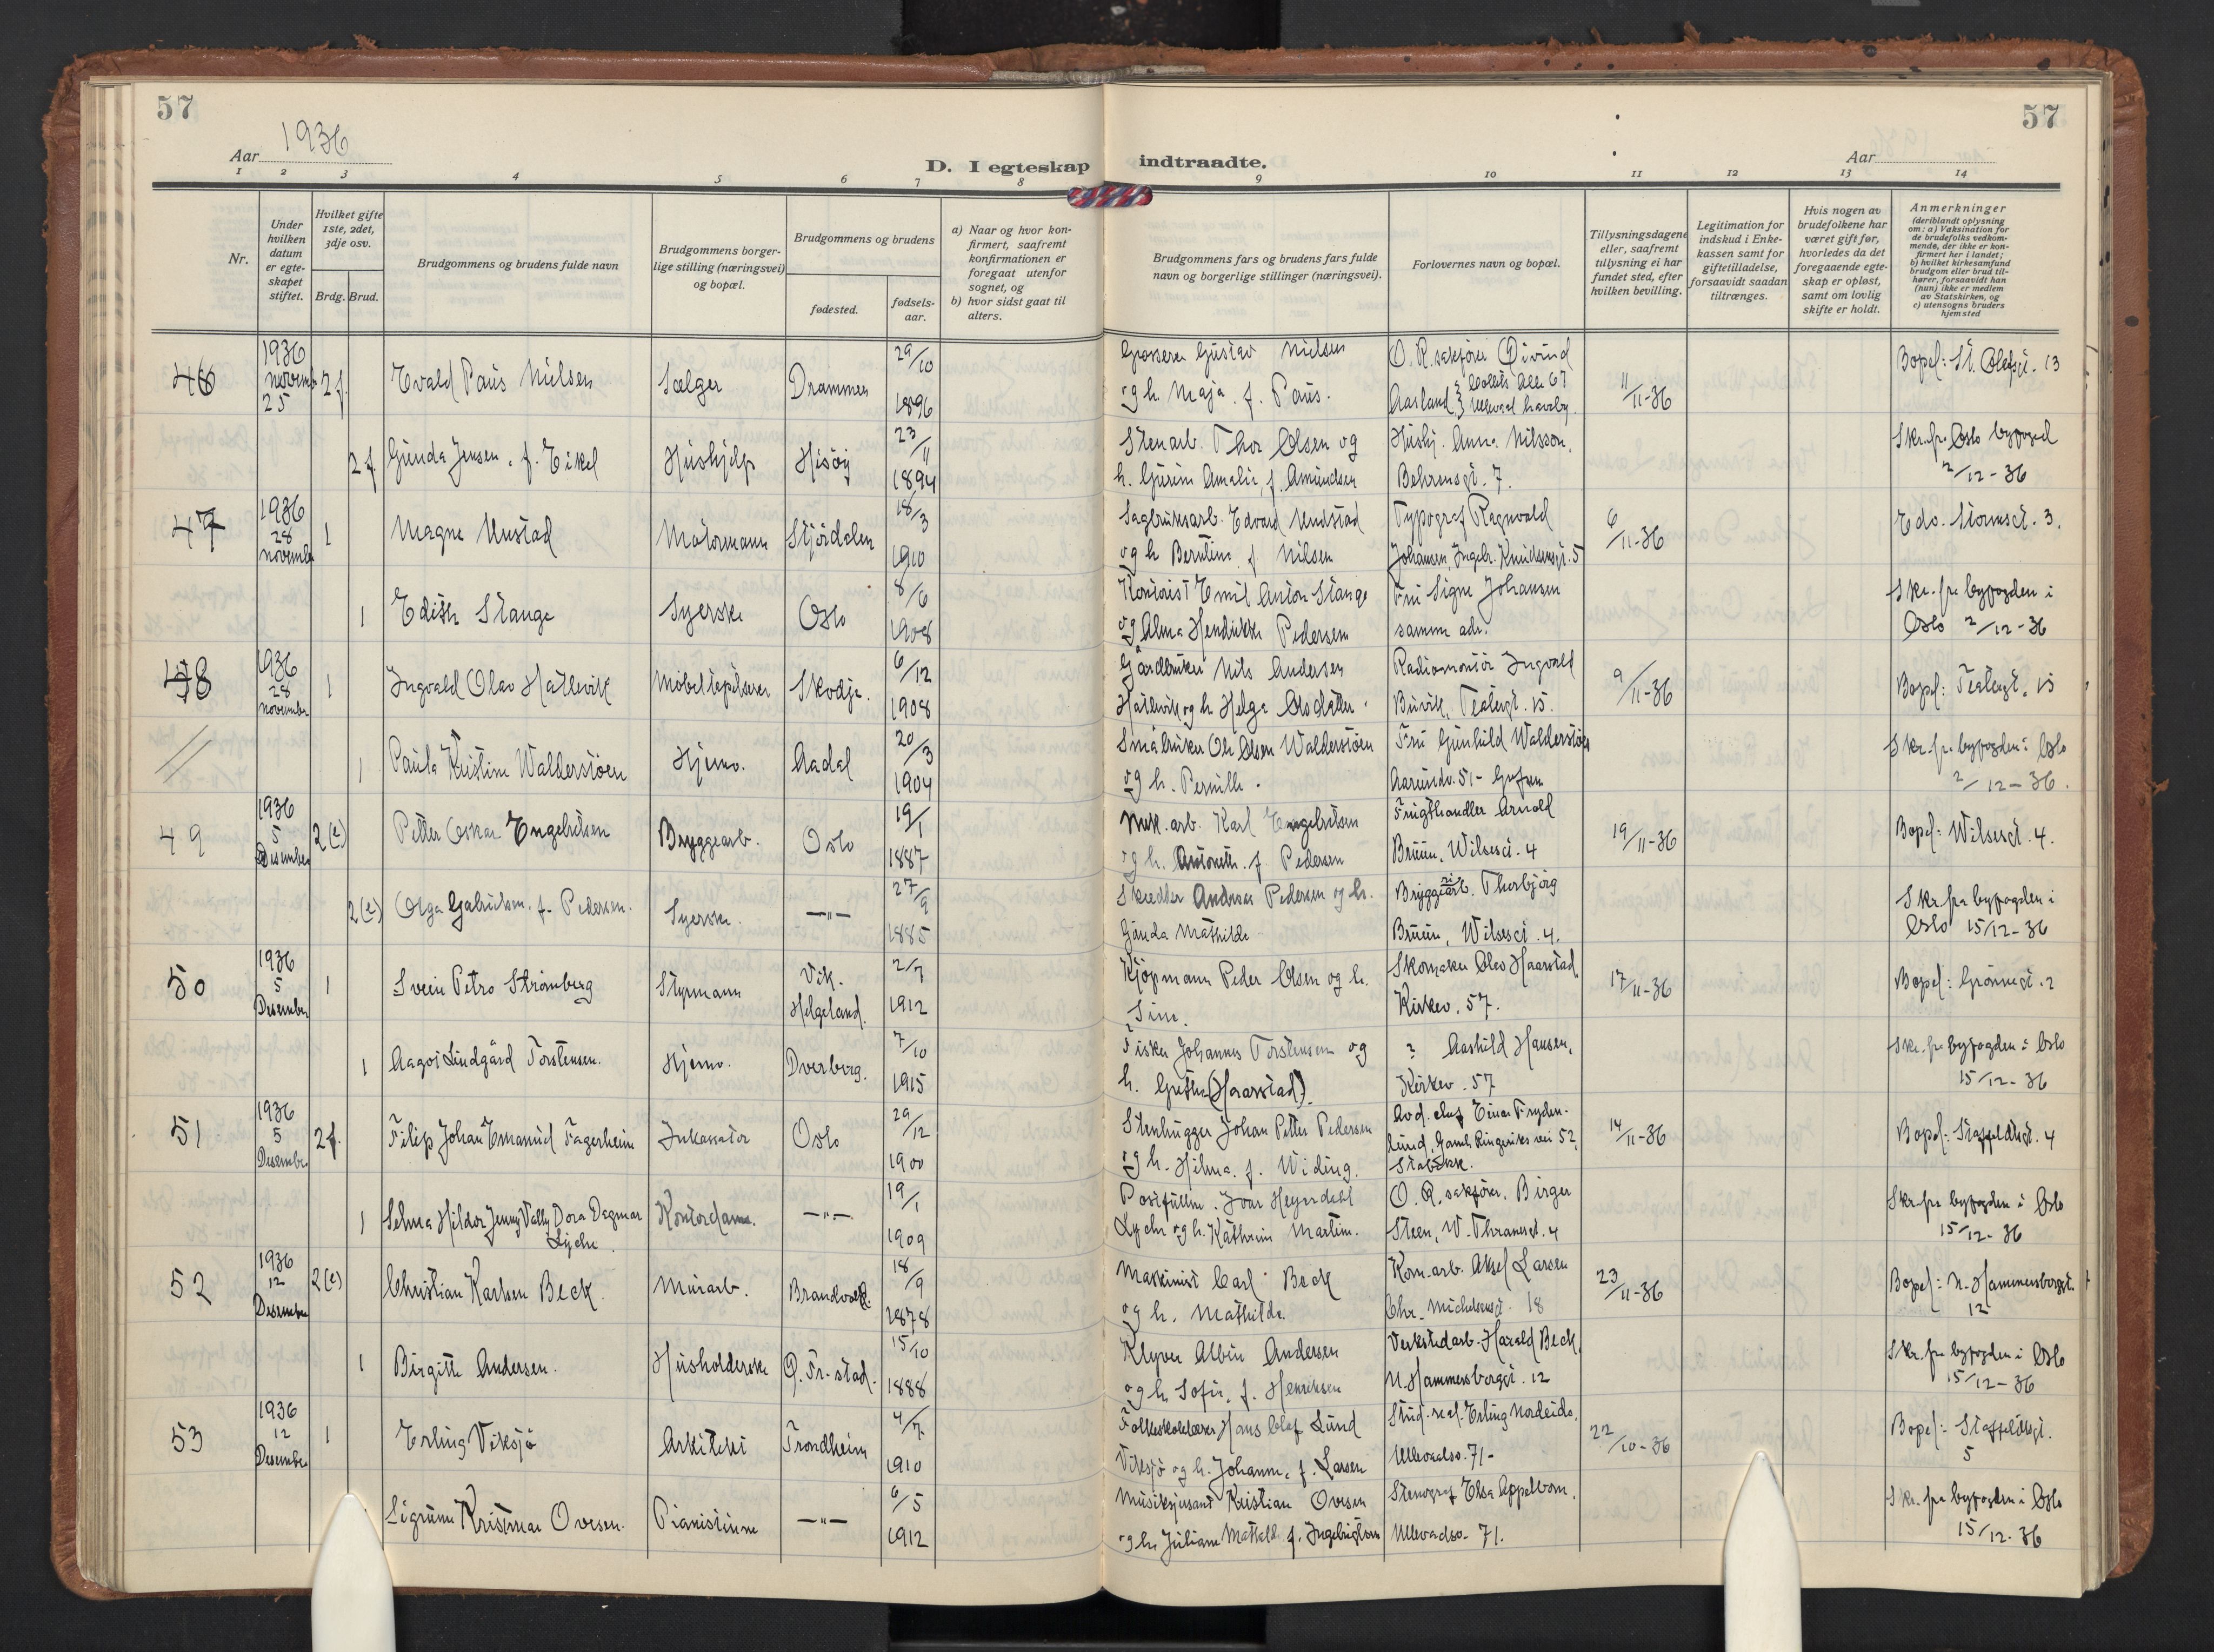 57
57
Aar 1936
D. I egteskap indtraadte.
Aar
1 2 3 4 5 6 7 8 9 10 11 12 13 14
Nr.
Under hvilken datum er egteskapet stiftet.
Hvilket gifte 1ste, 2det, 3dje osv.
Brdg. Brud.
Brudgommens og brudens fulde navn
Brudgommens borgerlige stilling (næringsvei) og bopæl.
Brudgommens og brudens
fødested.
fødselsaar.
a) Naar og hvor konfirmert, saafremt konfirmationen er foregaat utenfor sognet, og
b) hvor sidst gaat til alters.
Brudgommens fars og brudens fars fulde navn og borgerlige stillinger (næringsvei).
Forlovernes navn og bopæl.
Tillysningsdagene eller, saafremt tillysning ei har fundet sted, efter hvilken bevilling.
Legitimation for indskud i Enkekassen samt for giftetilladelse, forsaavidt saadan tiltrænges.
Hvis nogen av brudefolkene har været gift før, hvorledes da det foregaaende egteskap er opløst, samt om lovlig skifte er holdt.
Anmerkninger (deriblandt oplysning om: a) Vaksination for de brudefolks vedkommende, der ikke er konfirmert her i landet; b) hvilket kirkesamfund brudgom eller brud tilhører, forsaavidt han (hun) ikke er medlem av Statskirken, og c) utensogns bruders hjemsted
46 1936 novemb 25 2 f. Evald Paus Nilsen Sælger Drammen 29/10 1896 Grosserer Gustav Nilsen og h. Maja f. Paus. O. R. sakfører Øivind Aasland Colletts Alle 67 Ullevaal haveby. 11/11-36 Bopel: St. Olafsgt. 13
2 f. Gunda Jensen. f. Eikel Hushjelp Hisøy 23/11 1894 Stenarb. Thor Olsen og h. Gurine Amalie, f. Amundsen Hushj. Anna Nilsson, Behrensgt. 7. Skr. fra Oslo byfoged 2/12-36
47 1936 28 november 1 Magne Unstad Motormann Stjördalen 18/3 1910 Sagbruksarb. Edvard Undstad og h Berntine f. Nilsen Typograf Ragnvald Johansen, Ingebr. Knudsensgt. 5 6/11-36 Edv. Stormsgt. 3.
1 Edith Stange Syerske Oslo 8/6 1908 Kontorist Emil Anton Stange og Alma Hendrikke Pedersen Fru Signe Johansen samme adr. Skr. fra byfogden i Oslo 2/12-36
48 1936 28 november 1 Ingvald Olav Hatlevik Møbeltapetserer Skodje. 6/12 1908 Gårdbruker Nils Andersen Hatlevik og h. Helga Aasdatter. Radiomontör Ingvald Buvik, Teatergt. 15. 9/11-36 Bopel: Teatergt. 15
1 Paula Kristine Walderstöen Hjemv. Aadal 20/3 1904 Småbruker Ole Olsen Walderstöen og h. Pernille. Fru Gunhild Walderstöen Aarundv. 51 - Grefsen Skr. fra byfogden i Oslo 2/12-36.
49 1936 5 Desember 2(e) Petter Oskar Engelbretsen Bryggearb. Oslo 19/1 1887 Mek. arb. Karl Engelbretsen og h. Antonette. f. Pedersen Frugthandler Arnold Bruun, Wilsesgt. 4 19/11-36 Bopel: Wilsesgt. 4.
2(e) Olga Gabrielsen. f. Pedersen. Syerske. —"— 27/9 1885 Skredder Andreas Pedersen og h. Gunda Mathilde Bryggeriarb. Thorbjörg Bruun, Wilsesgt. 4. Skr. fra byfogden i Oslo 15/12-36
50 1936 5 Desember 1 Svein Petro Strömberg Styrmann Vik. Helgeland. 2/7 1912 Kjöpmann Peder Olsen og h. Sine. Skomaker Olav Haarstad Kirkev. 57. 17/11-36 Bopel: Grönnegt. 2
1 Aagot Lindgård Torstensen. Hjemv. Dverberg. 7/10 1915 Fisker Johannes Torstensen og h. Grethe (Haarstad). ? Aashild Hansen, Kirkev. 57 Skr. fra byfogden i Oslo 15/12-36
51 1936 5 Desember 2 f. Filip Johan Emanuel Fagerheim Inkassator Oslo 29/12 1900 Stenhugger Johan Petter Pedersen og h. Hilma. f. Widing. Avd. chef Einar Frydenlund, Gamle Ringeriks vei 52, Stabekk. 14/11-36 Bopel: Staffeldtsgt. 4
1 Selma Hildor Jenny Vally Dora Dagmar Lyche Kontordame. —"— 19/1 1909 Postfullm. Ivar Heyerdahl Lyche og h. Kathrine Martine. O. R. sakförer, Birger Steen, W. Thranesgt. 4 Skr. fra byfogden i Oslo 15/12-36
52 1936 12 Desember 2(e) Christian Karlsen Beck. Murarb. Brandvold. 18/9 1878 Maskinist Carl Beck og h. Mathilde. Kom. arb. Aksel Larsen Chr. Michelsensgt. 18 23/11-36 Bopel: N. Hammersborggt. 12
1 Birgitte Andersen. Husholderske Ø. Fr.stad. 15/10 1888 Klyver Albin Andersen og h. Sofie, f. Henriksen Verkstedarb. Harald Beck, N. Hammersborggt. 12 Skr. fra byfogden i Oslo 15/12-36
53 1936 12 Desember 1 Erling Viksjö Arkitekt Trondheim 4/7 1910 Folkeskolelærer Hans Olaf Lund Viksjö og h. Johanne, f. Larsen Stud. real. Erling Nordeide, Ullevaalsv. 71- 22/10-36 Bopel: Staffeldtsgt. 5
Sigrunn Kristmar Ovesen. Pianistinne —"— 6/5 1912 Musiksjersant Kristian Ovesen og h. Juliane Mathilde f. Ingebrigtsen Stenograf Elsa Appelbom, Ullevaalsv. 71. Skr. fra byfogden i Oslo 15/12-36